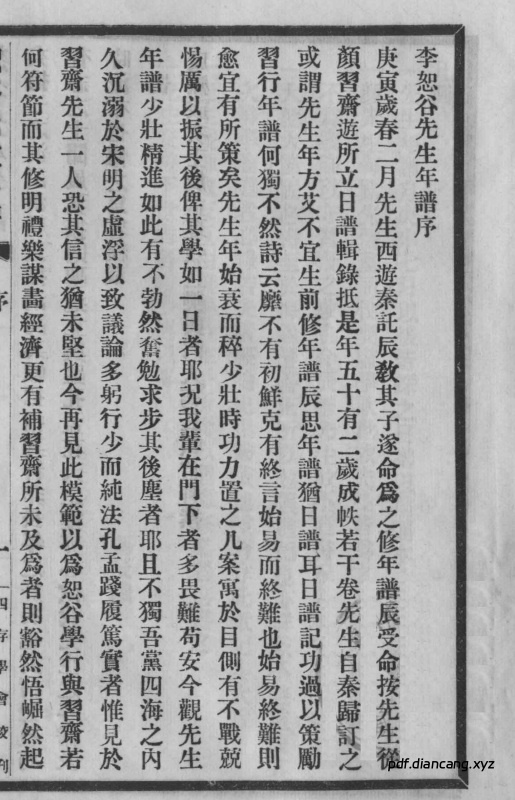 李恕谷先生年譜序
庚寅歲春二月先生西遊秦託辰敎其子遂命爲之修年譜辰受命按先生從
顏習齋遊所立日譜輯錄抵是年五十有二歲成帙若干卷先生自秦歸訂之
或謂先生年方艾不宜生前修年譜辰思年譜猶日譜耳日譜記功過以策勵
習行年譜何獨不然詩云靡不有初鮮克有終言始易而終難也始易終難則
愈宜有所策矣先生年始衰而稡少壯時功力置之几案寓於目側有不戰兢
惕厲以振其後俾其學如一日者耶況我輩在門下者多畏難苟安今觀先生
年譜少壯精進如此有不勃然奮勉求步其後塵者耶且不獨吾黨四海之內
久沉溺於宋明之虛浮以致議論多躬行少而純法孔孟踐履篤實者惟見於
習齋先生一人恐其信之猶未堅也今再見此模範以爲恕谷學行與習齋若
何符節而其修明禮樂謀畫經濟更有補習齋所未及爲者則豁然悟崛然起
序
一
四存學會校刊
pdf.diancang.xyz